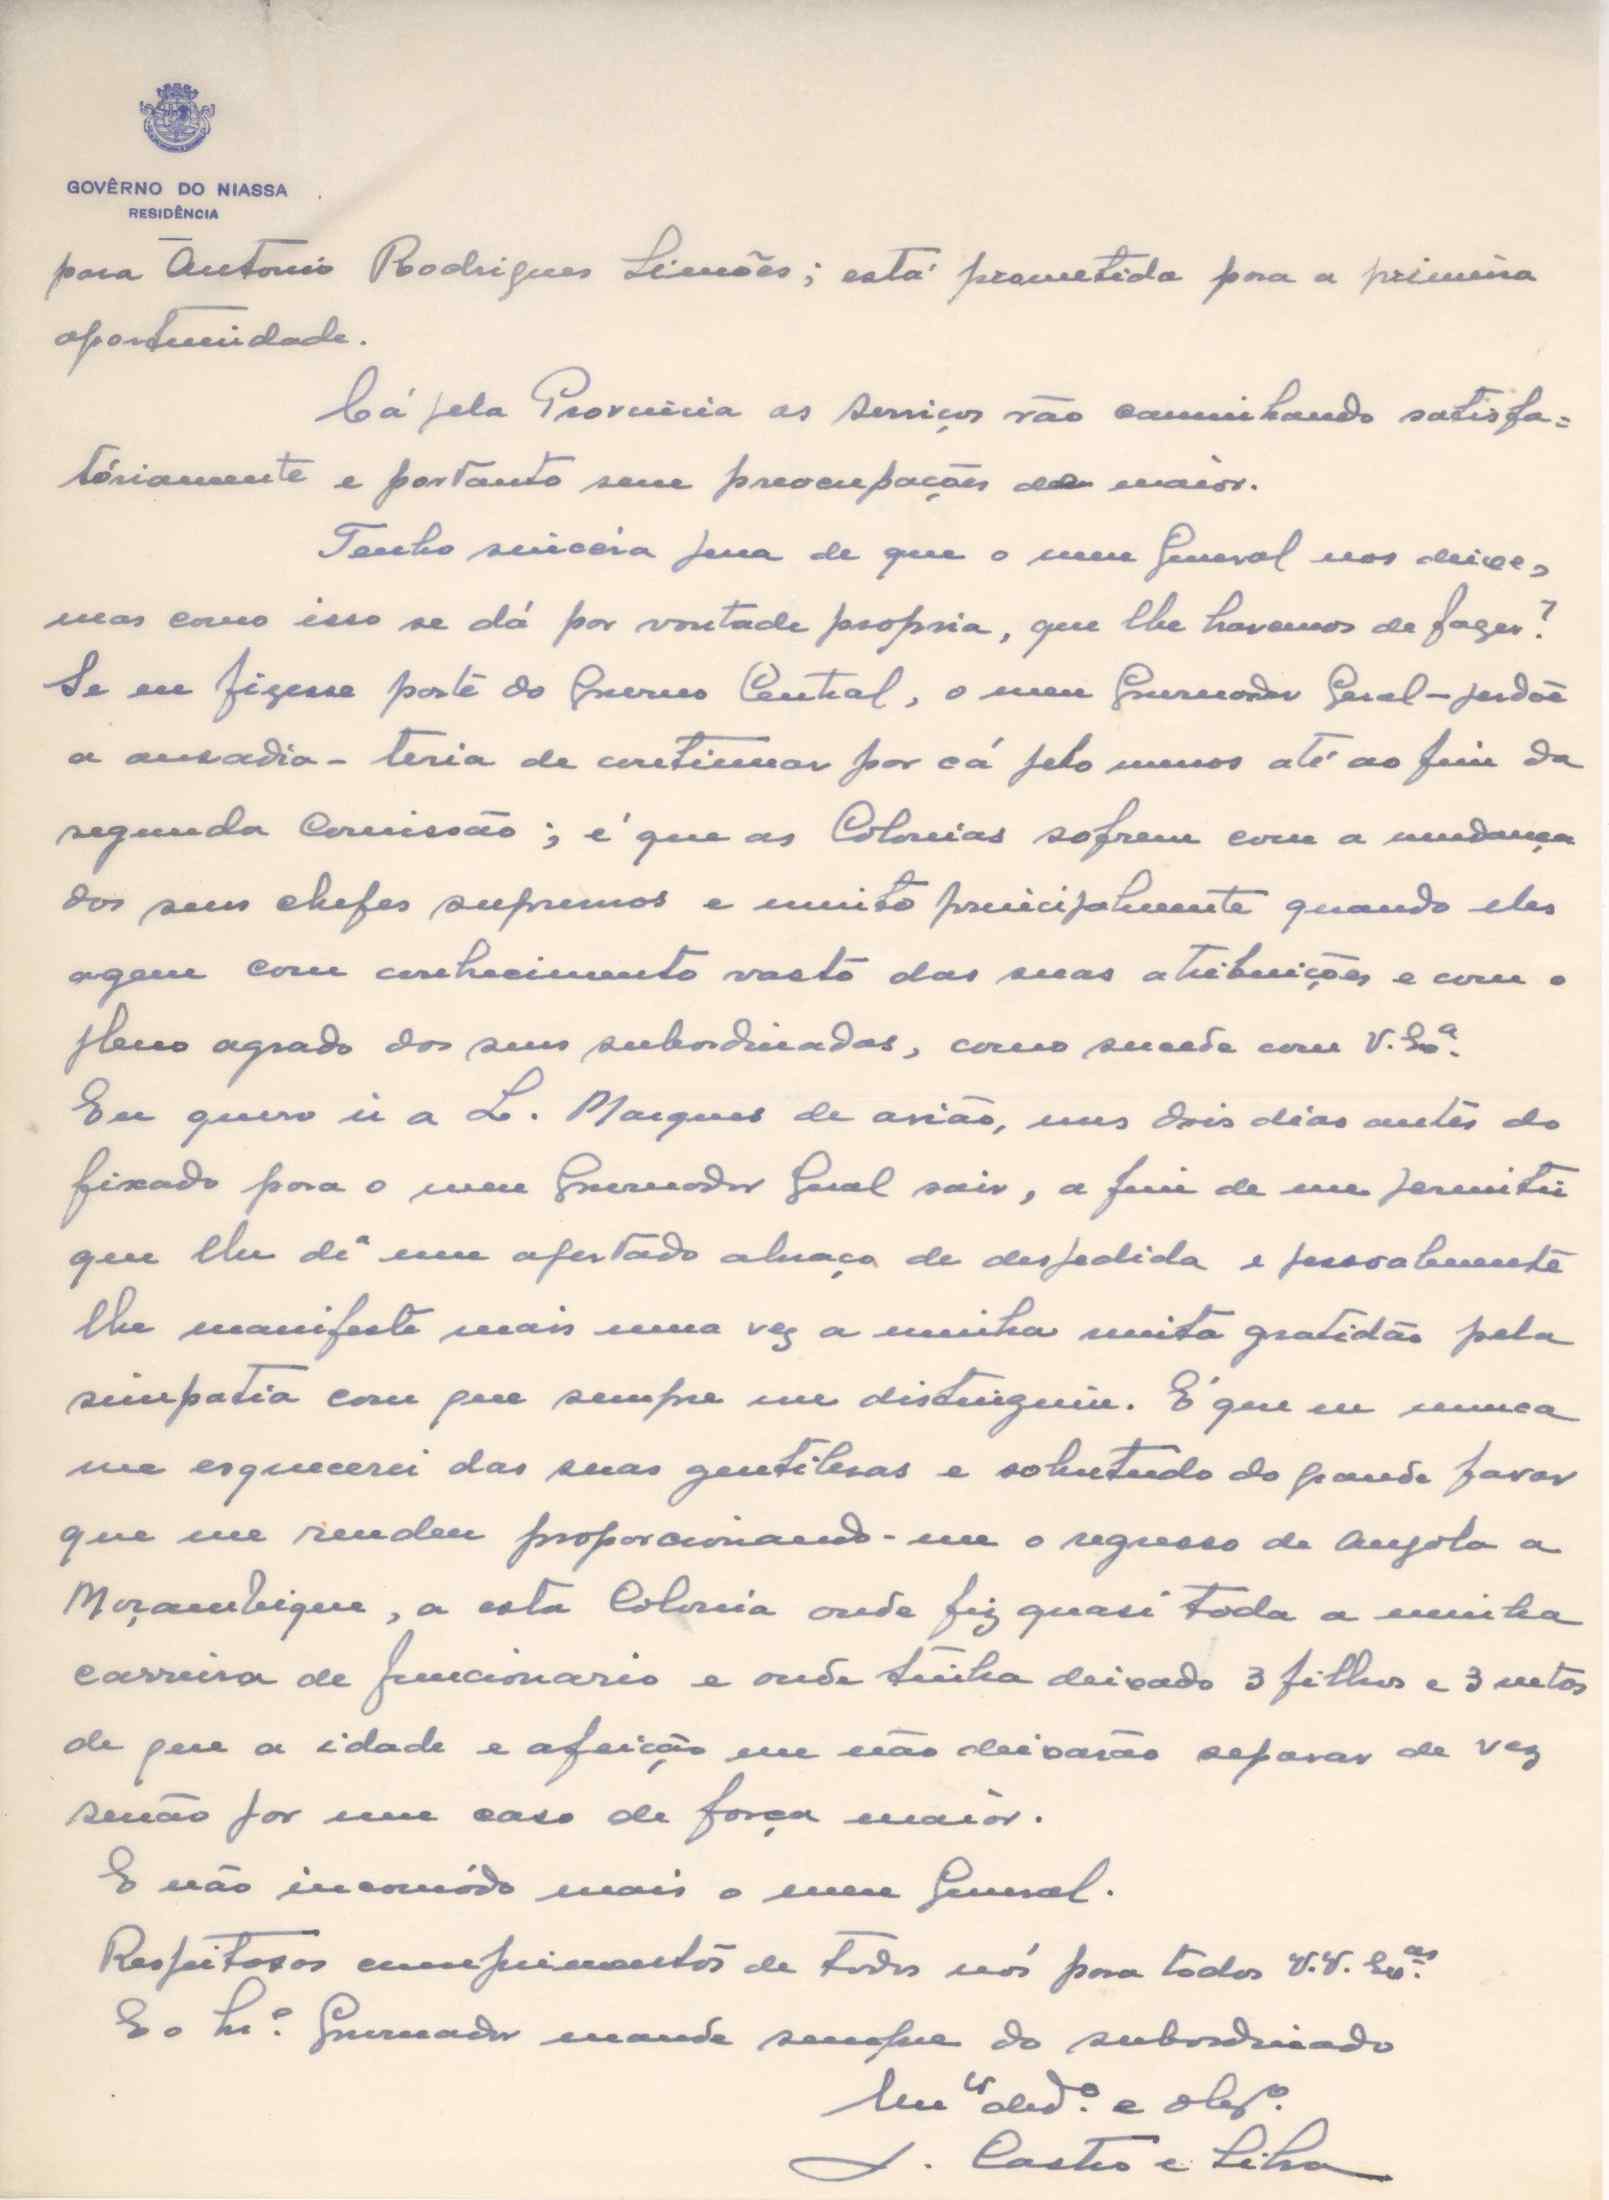 GOVÊRNO DO NIASSA
RESIDÊNCIA
para Antonio Rodrigues Simões; está prometida para a primeira
oportunidade.
Cá pela Provincia os serviços vão caminhando satisfa=
tóriamente e portanto sem preocupações de maior.
Tenho sincera pena de que o meu General nos deixe,
mas como isso se dá por vontade propria, que lhe havemos de fazer?
Se eu fizesse parte do Governo Central, o meu Governador Geral - perdoe
a ousadia - teria de continuar por cá pelo menos até ao fim da
segunda Comissão; é que as Colonias sofrem com a mudança
dos seus chefes supremos e muito principalmente quando eles
agem com conhecimento vasto das suas atribuições e com o
pleno agrado dos seus subordinados, como sucede com V. Exª.
Eu quero ir a L. Marques de avião, uns dois dias antes do
fixado para o meu Governador Geral sair, a fim de me permitir
que lhe dê um apertado abraço de despedida e pessoalmente
lhe manifeste mais uma vez a minha muita gratidão pela
simpatia com que sempre me distinguiu. É que eu nunca
me esquecerei das suas gentilesas e sobretudo do grande favor
que me rendeu proporcionando-me o regresso de Angola a
Moçambique, a esta Colonia onde fiz quasi toda a minha
carreira de funcionario e onde tinha deixado 3 filhos e 3 netos
de que a idade e afeição me não deixarão separar de vez
senão por um caso de força maior.
E não incomódo mais o meu General.
Respeitosos cumprimentos de todos nós para todos V.V. Exas.
E o Snr. Governador mande sempre do subordinado
Mto dedº. e obgº.
J. Castro e Silva